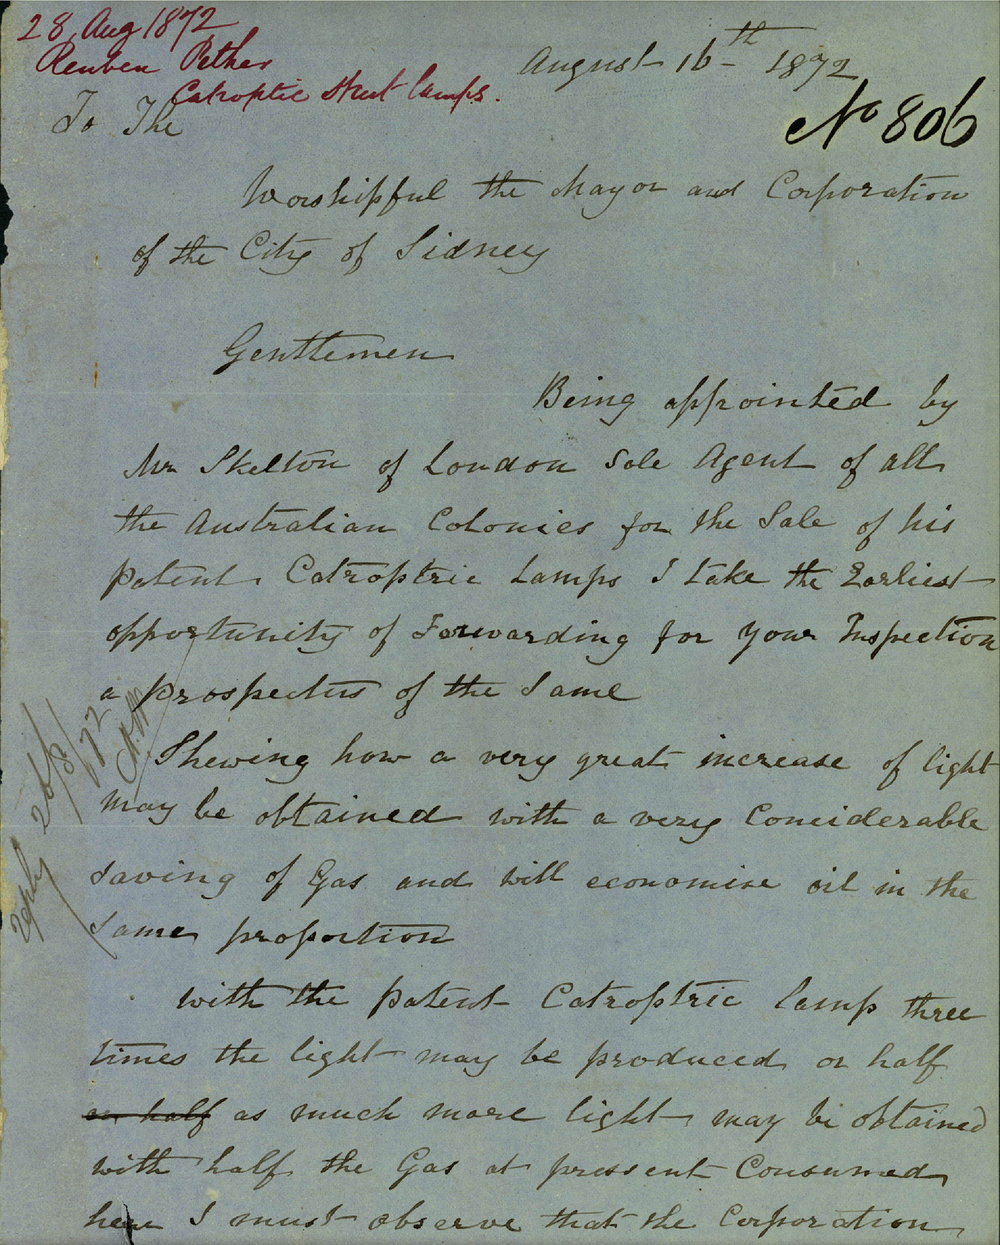 28 Aug 1872
Reuben Pether
Catroptic Street lamps.
August 16th 1872
No 806
To The
Worshipful the Mayor and Corporation
of the City of Sidney
Gentlemen
Being appointed by
Mr Skelton of London Sole Agent of all
the Australian Colonies for the Sale of his
patent Catroptric Lamps I take the Earliest
opportunity of Forwarding for your Inspection
a prospectus of the Same
Shewing how a very great increase of light
may be obtained with a very Conciderable
Saving of Gas and will economise oil in the
Same proportion
with the patent Catroptric lamp three
times the light may be produced or half
or half as much more light may be obtained
with half the Gas at pressent Consumed
here I must observe that the Corporation
reply 26/8/72